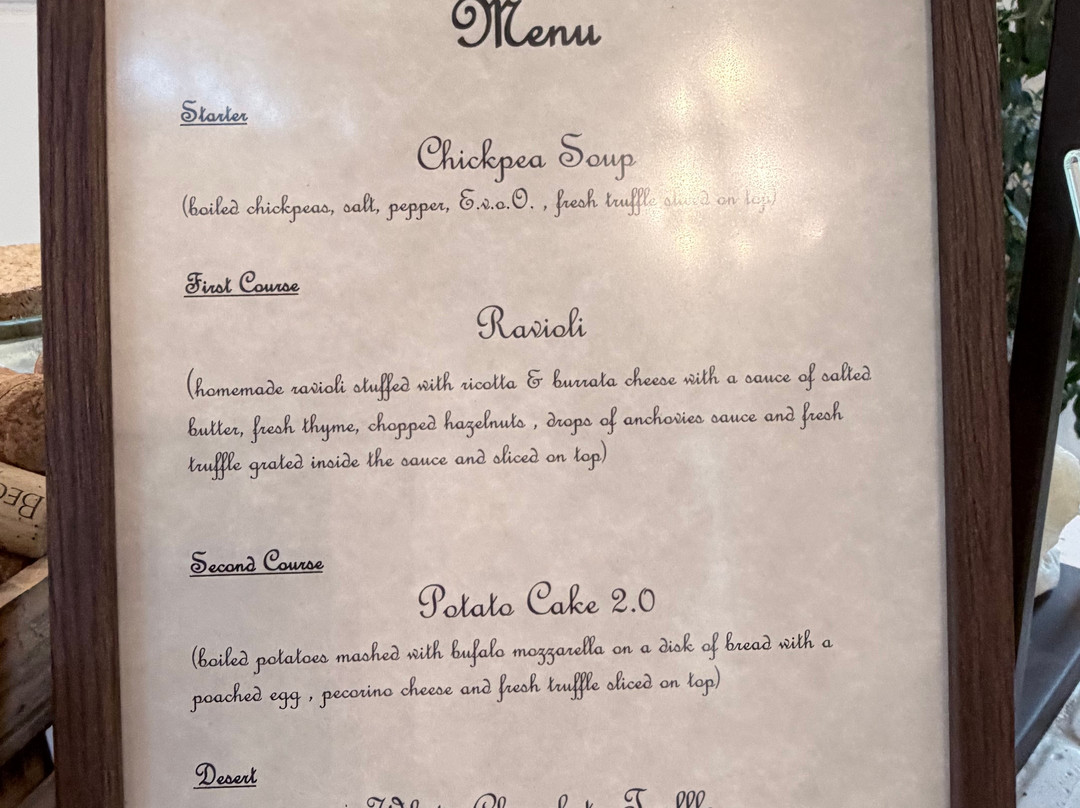 Menu
Starter
Chickpea Soup
(boiled chickpeas, salt, pepper, E.v.o.O. , fresh truffle sliced on top)
First Course
Ravioli
(homemade ravioli stuffed with ricotta & burrata cheese with a sauce of salted
butter, fresh thyme, chopped hazelnuts , drops of anchovies sauce and fresh
truffle grated inside the sauce and sliced on top)
Second Course
Potato Cake 2.0
(boiled potatoes mashed with bufalo mozzarella on a disk of bread with a
poached egg , pecorino cheese and fresh truffle sliced on top)
Desert